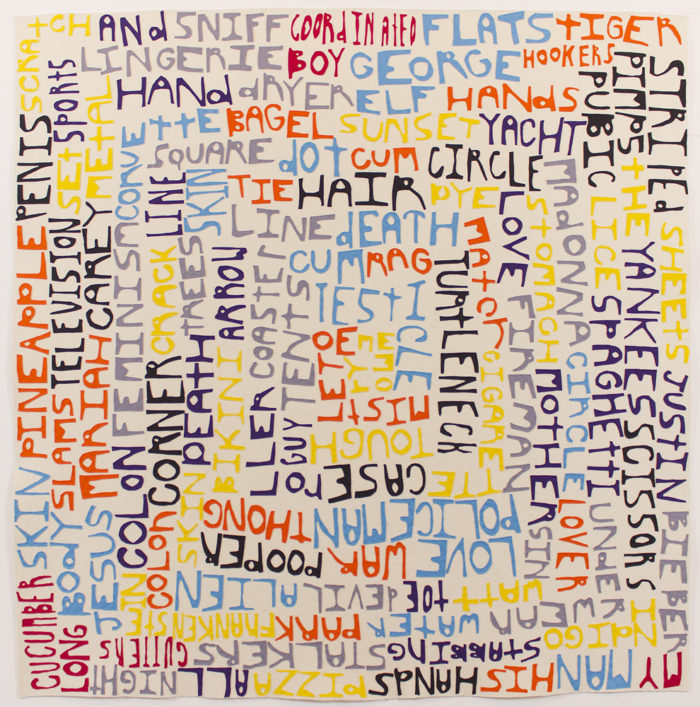 MY MAN HIS HANDS PIZZA ALL NIGHT LONG
CUCUMBER SKIN PINEAPPLE PENIS SCRATCH
AND SNIFF COORDINATED FLATS TIGER
STRIPED SHEETS JUSTIN BIEBER
INDIGO STABBING STALKERS GUTTERS
BODY SLAMS TELEVISION SET SPORTS
LINGERIE BOY GEORGE HOOKERS
PIMPS THE YANKEES SCISSORS
UNDERWEAR WATER PARK FRANKENSTEIN
JESUS MARIAH CAREY METAL
HAND DRYER ELF HANDS
PUBIC LICE SPAGHETTI
COLON FEMINISM CORVETTE
BAGEL SUNSET YACHT
MADONNA CIRCLE LOVER
TOE DEVIL ALIEN
COLON CORNER CRACK LINE
SQUARE DOT CUM CIRCLE
STOMACH MOTHER SIN
LOVE WAR POOPER
SKIN DEATH TREES SKIN
TIE HAIR DYE
LOVE FIREMAN
POLICEMAN THONG
BIKINI ARROW
LINE DEATH
MATCH CIGARETTE
CASE ROLLER COASTER
CUM RAG
TURTLENECK
TOUGH GUY TENTS
TESTICLE
MISTLETOE